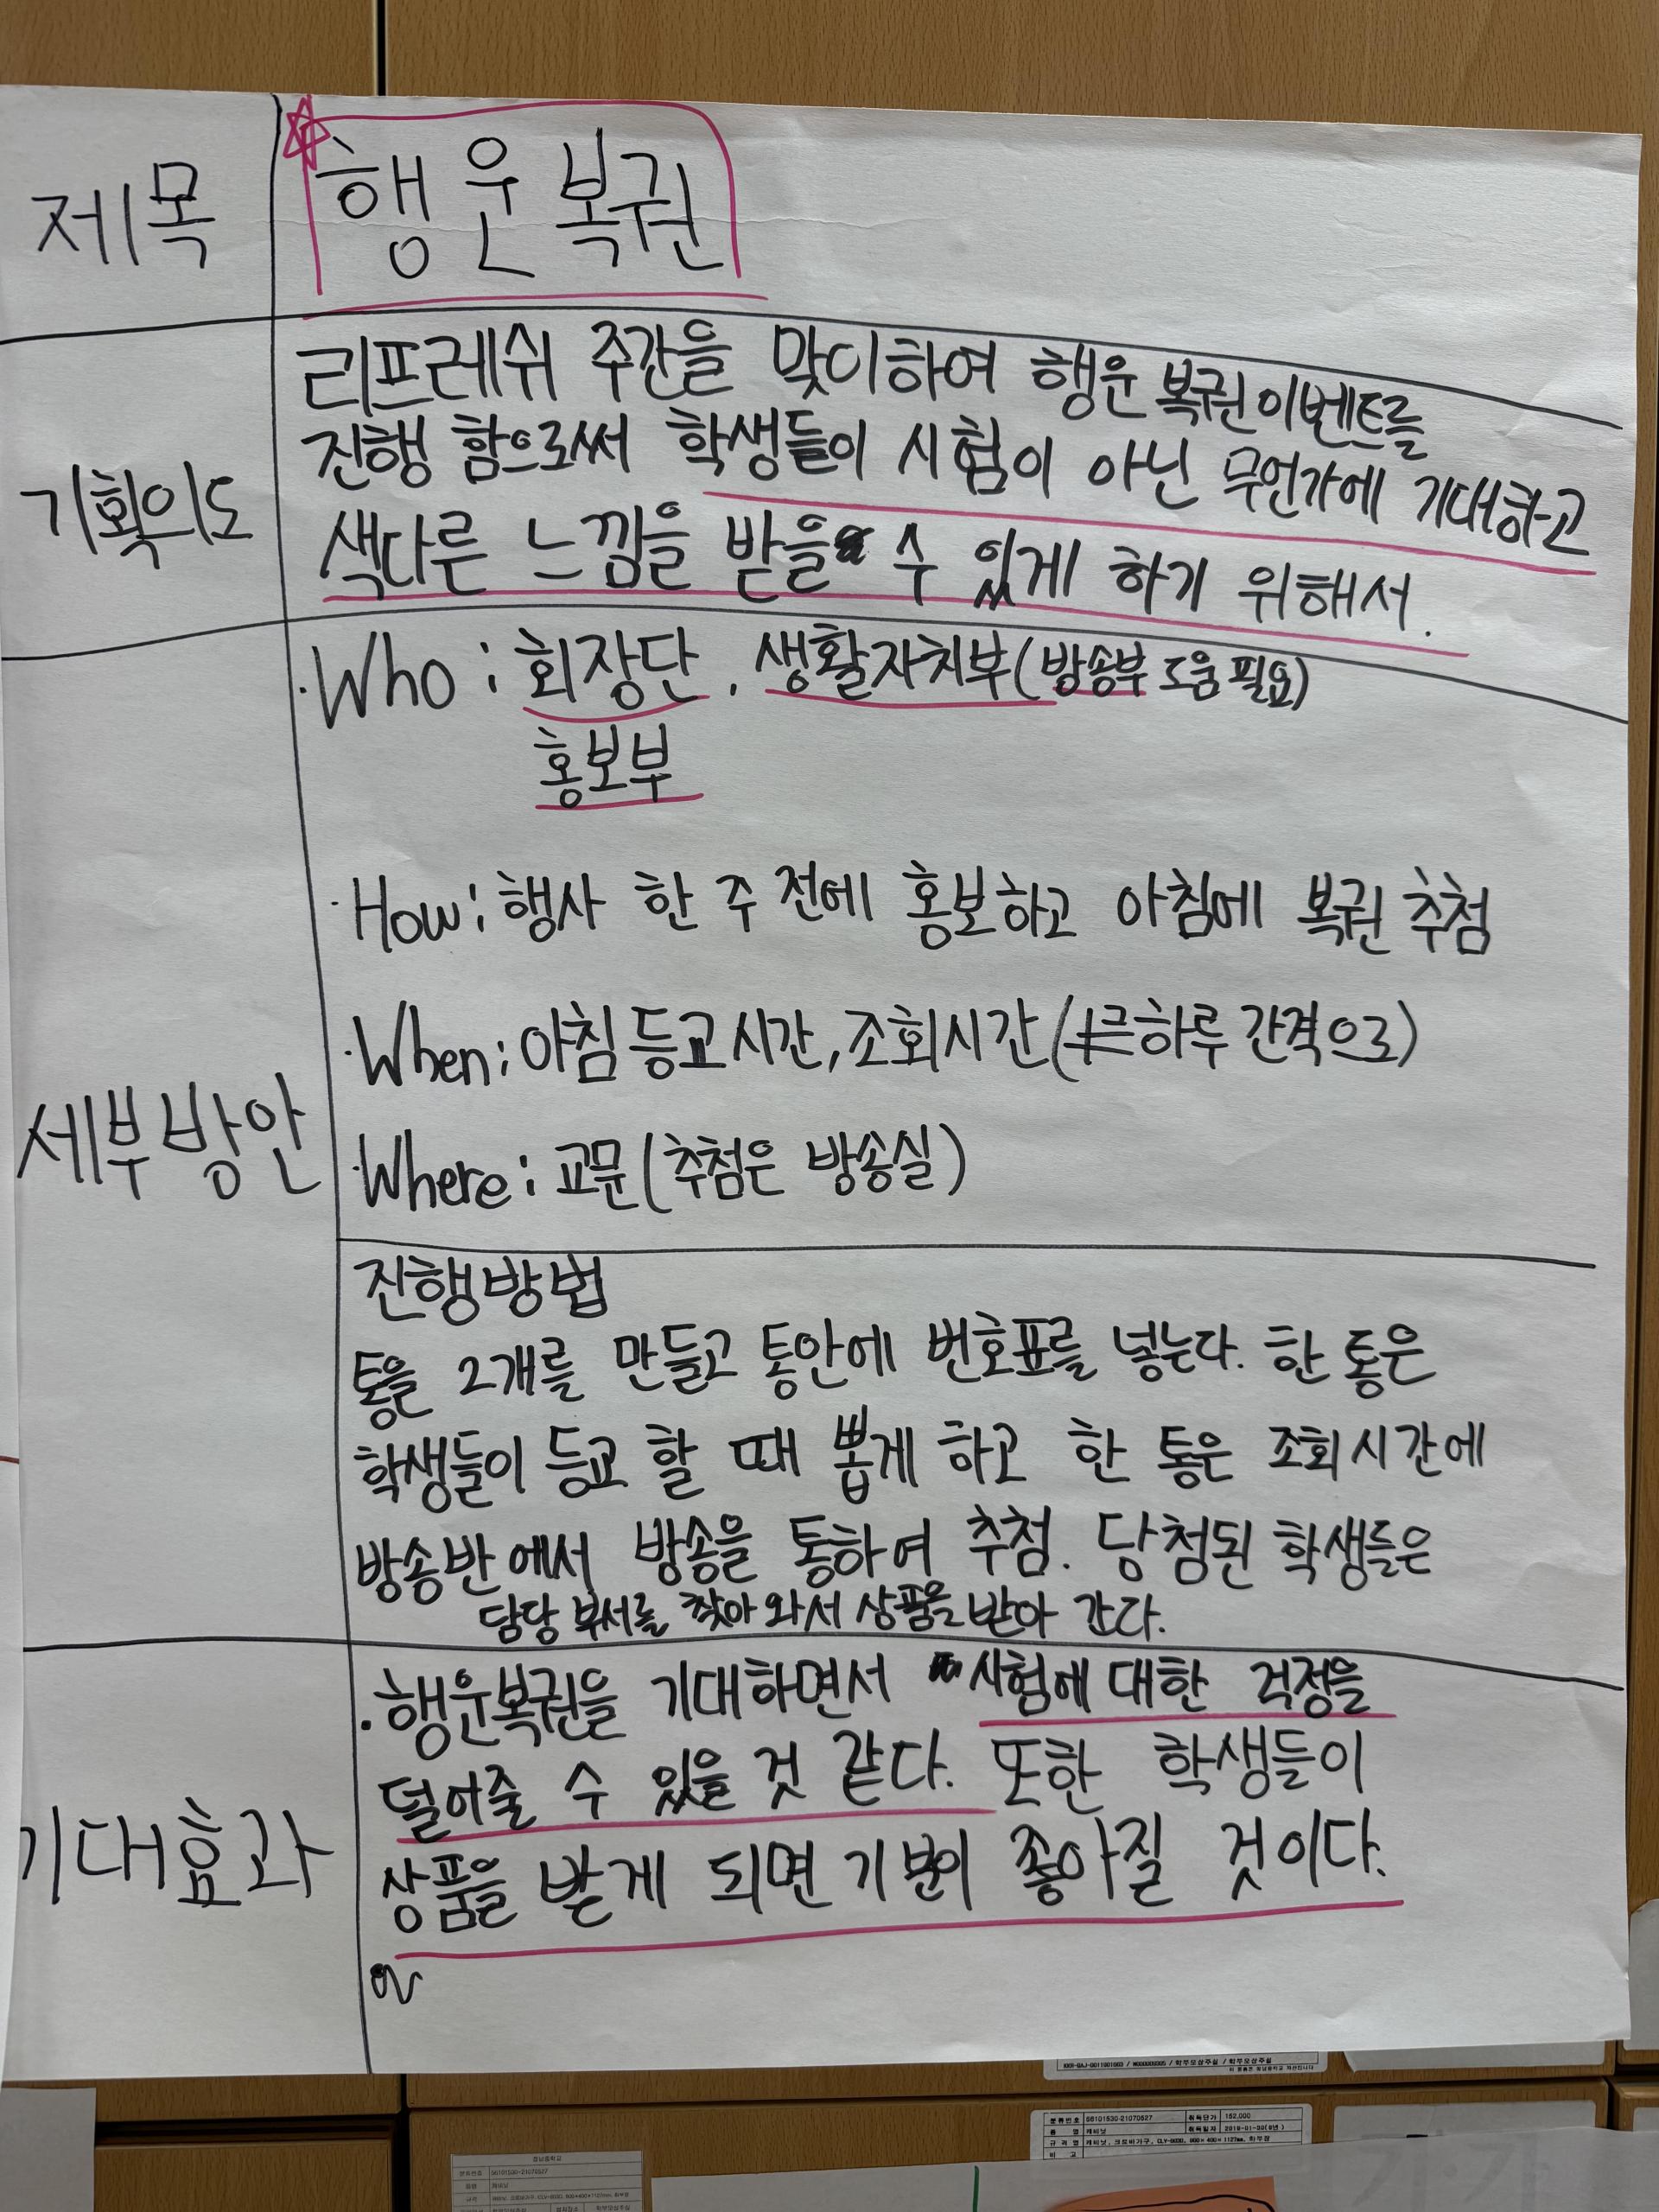 제목
행운복권
기획의도
리프레쉬 주간을 맞이하여 행운 복권이벤트를
진행 함으로써 학생들이 시험이 아닌 무언가에 기대하고
색다른 느낌을 받을 수 있게 하기 위해서.
세부방안
·Who : 회장단, 생활자치부(방송부 도움 필요)
홍보부
·How : 행사 한 주 전에 홍보하고 아침에 복권 추첨
·When : 아침 등교시간, 조회시간(하루 간격으로)
·Where : 교문(추첨은 방송실)
진행방법
통을 2개를 만들고 통안에 번호표를 넣는다. 한 통은
학생들이 등교 할 때 뽑게 하고 한 통은 조회시간에
방송반에서 방송을 통하여 추첨. 당첨된 학생들은
담당 부서를 찾아 와서 상품을 받아 간다.
기대효과
·행운복권을 기대하면서 시험에 대한 걱정을
덜어줄 수 있을 것 같다. 또한 학생들이
상품을 받게 되면 기분이 좋아질 것이다.
분류번호 56101530-21070527 취득단가 152,000
품 명 캐비닛 취득일자
규 격 명
비 고